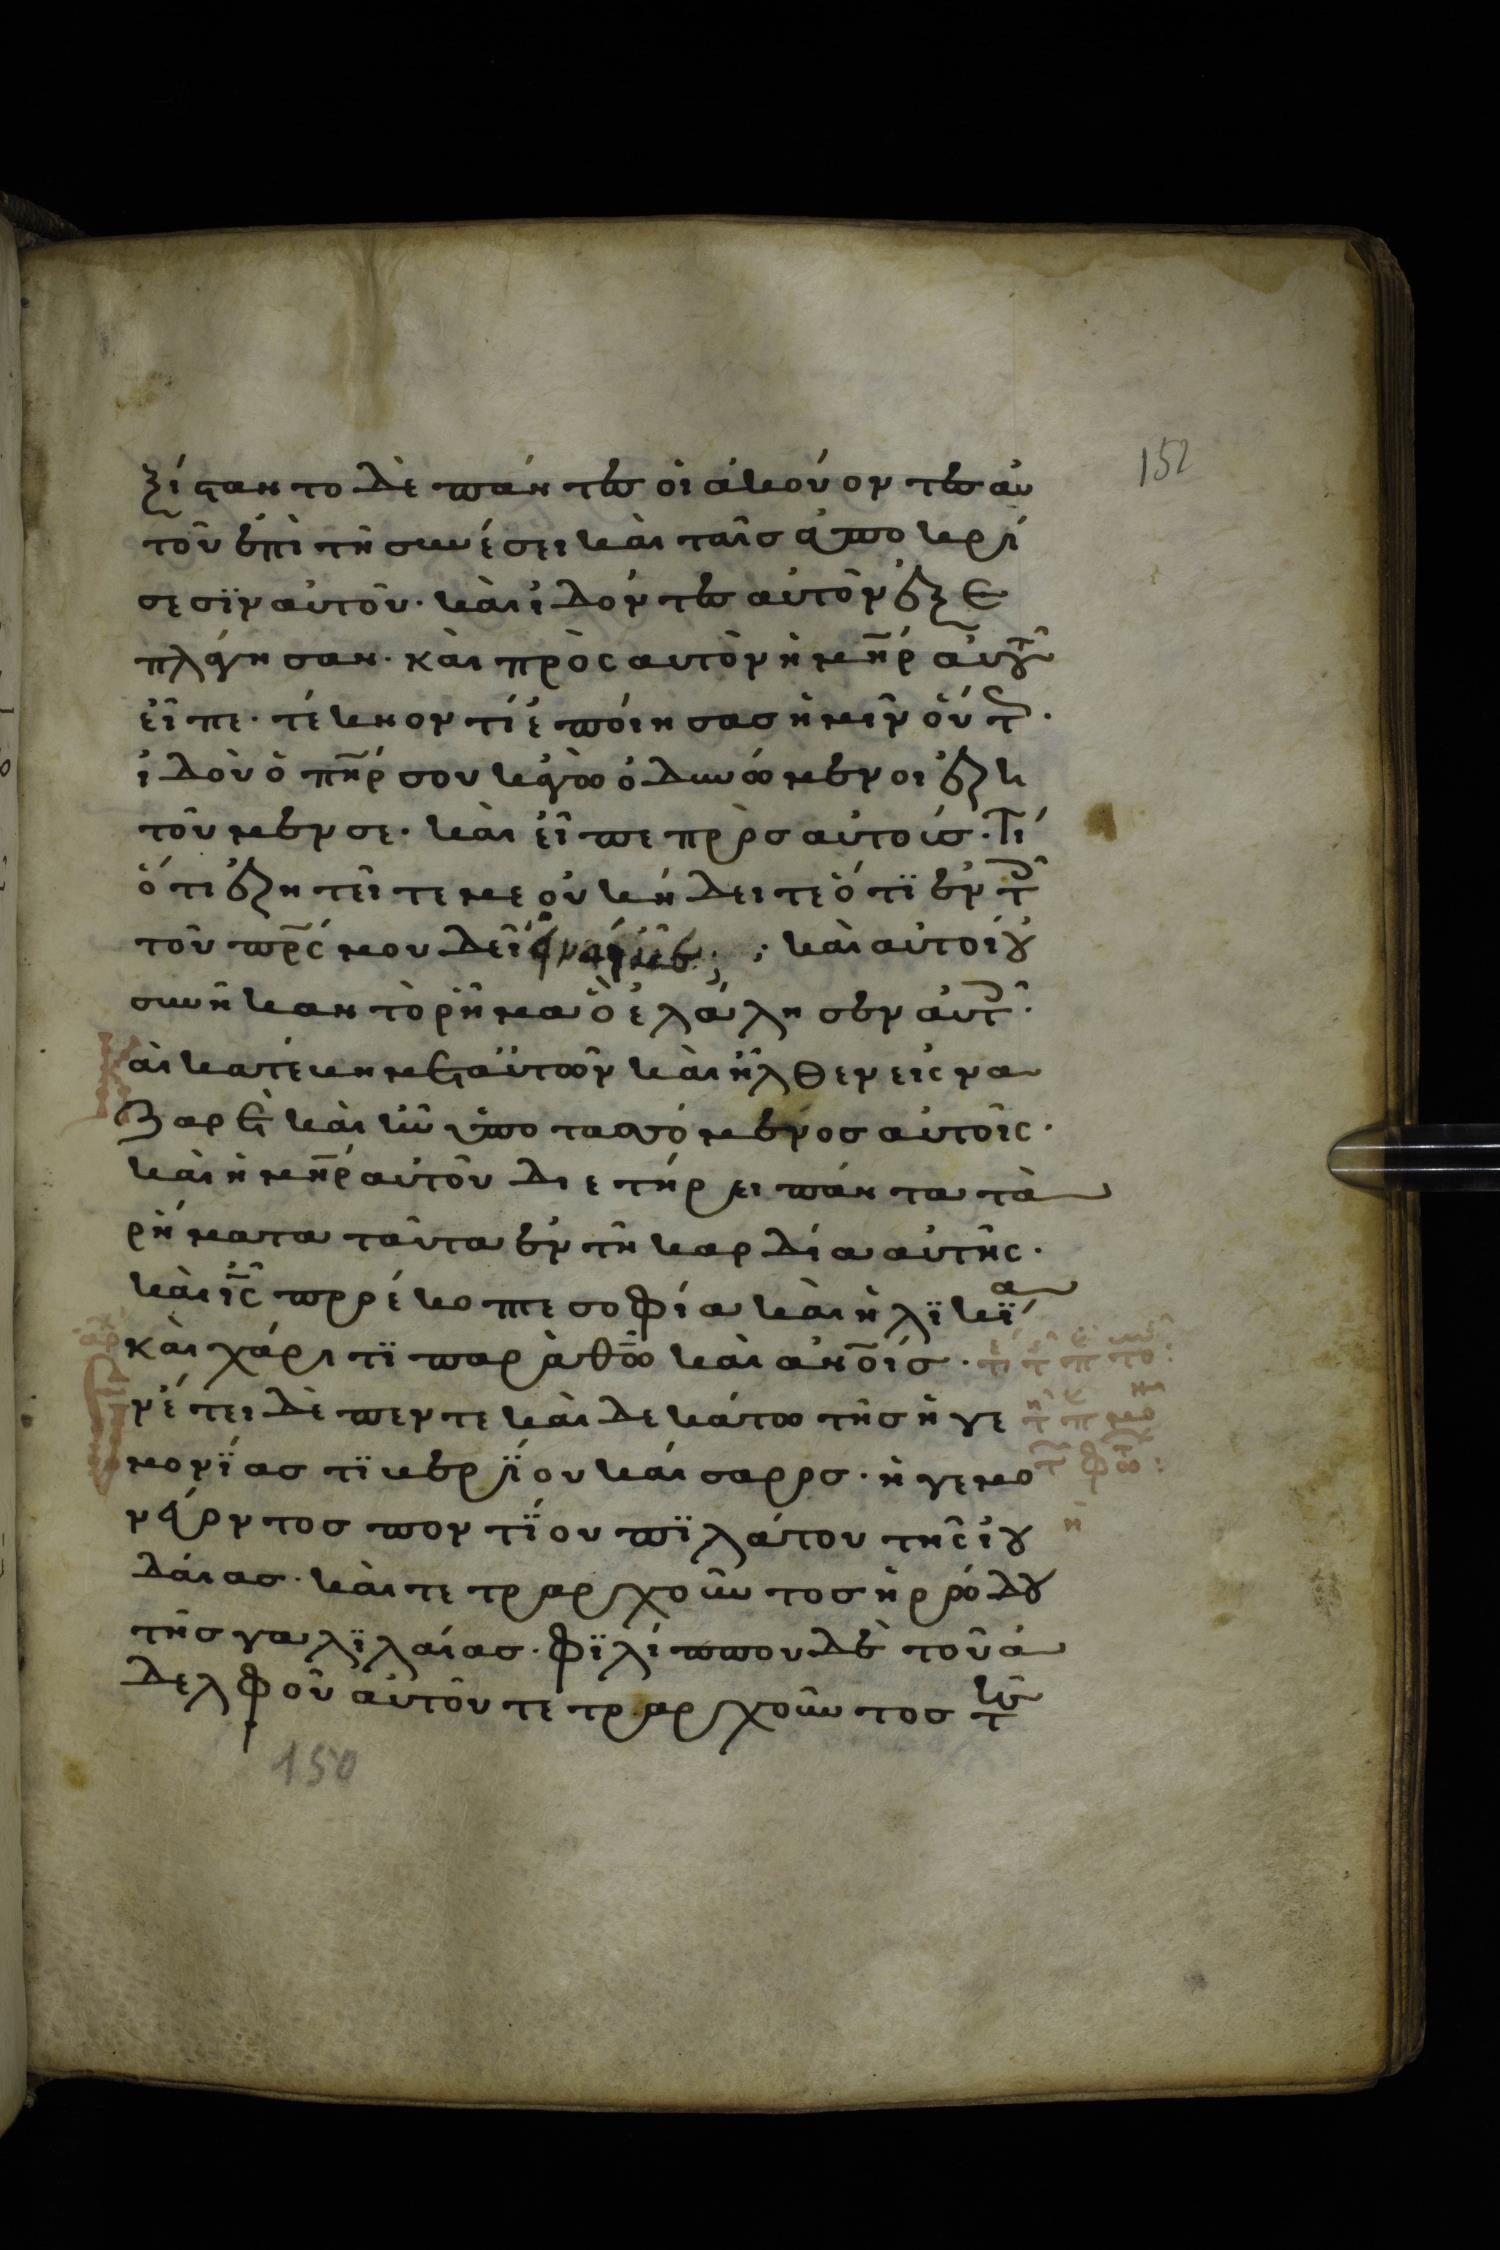 152
ξίσταντο δὲ πάντες οἱ ἀκούοντες αὐ
τοῦ ἐπὶ τῆ συνέσει καὶ ταῖσ ἀποκρί
σεσϊν αὐτοῦ· καὶ ἰδόντες αὐτὸν ἐξε
πλάγησαν· καὶ πρὸς αυτὸν ἡ μη̃ρ αὐτοῦ
εἶπε· τέκνον τί ἐποίησασ ἡμῖν οὕτως·
ἰδοὺ ὁ πη̃ρ σου κἀγὼ ὀδυνώμενοι ἐζη
τοῦμεν σε· καὶ εἶπε πρὸσ αὐτούσ· Τί
ὅτι ἐζητεῖτε με οὐκ ἤδειτε ὅτϊ ἐν τοῖς
τοῦ πρ̃ς μου δεῖ εἶναί με; καὶ αὐτοὶ οὐ
συνῆκαν τὸ ῥῆμα ὃ ἐλάλησεν αὐτοῖς·
Καὶ κατέβη μετ αὐτῶν καὶ ἦλθεν εἰς να
ζαρὲτ καὶ ἦν ὑποτασσόμενοσ αὐτοῖς·
καὶ ἡ μη̃ρ αὐτοῦ διετήρει πάντα τὰ
ῥήματα ταῦτα ἐν τῆ καρδία αὐτῆς·
καὶ ι̃ς προέκοπτε σοφία καὶ ἡλϊκΐα
καὶ χάριτϊ παρὰ θω̃ καὶ ἀνοισ·
Ἐν ἔτει δὲ πεντεκαιδεκάτω τῆσ ἡγε
μονΐασ τϊβερΐου καίσαροσ· ἡγεμο
νεύοντοσ ποντΐου πϊλάτου τῆς ἰου
δαίασ· καὶ τετραρχοῦντοσ ἡρώδου
τῆσ γαλϊλαίασ· φϊλίππου δὲ τοῦ ἀ
δελφοῦ αὐτοῦ τετραρχοῦντοσ τῆς
150